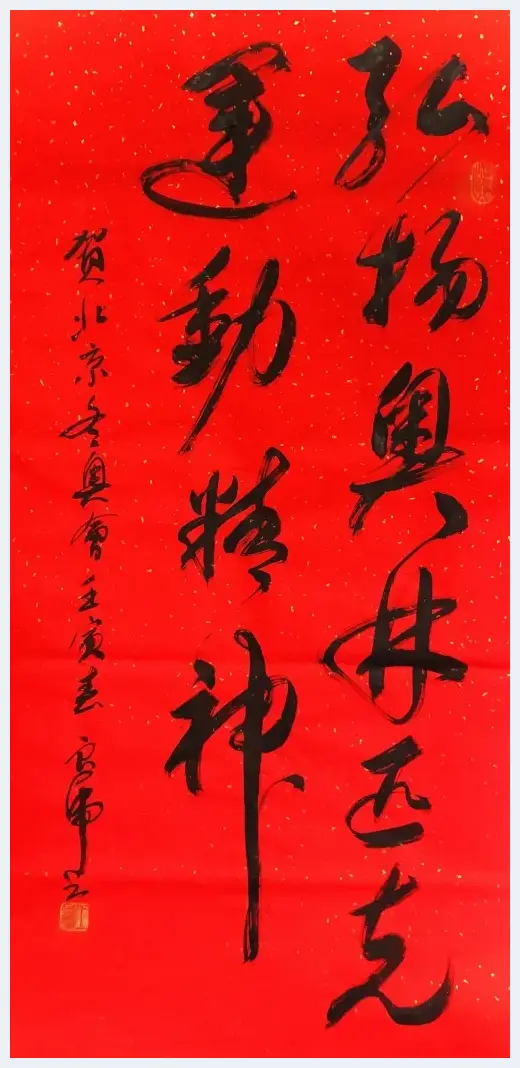 弘扬奥林匹克
運動精神
賀北京冬奥會壬寅春